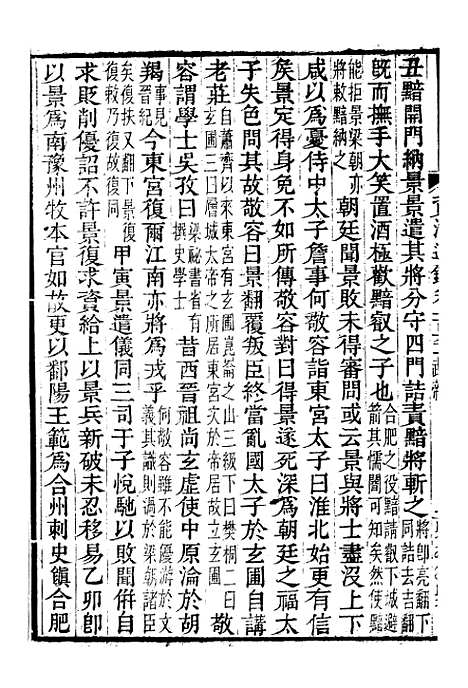 丑黯開門納景景遣其將分守四門詰責黯將斬之將卽亮翻下同詰去吉翻
旣而撫手大笑置酒極歡黯叡之子也合肥之役黯請叡下城避箭其懦闇可知矣然使黯
能拒景梁朝亦將敕黯納之朝廷聞景敗未得審問或云景與將士盡沒上下
咸以爲憂侍中太子詹事何敬容詣東宮太子曰淮北始更有信
矦景定得身免不如所傳敬容曰得景遂死深爲朝廷之福太
子失色問其故敬容曰景翻覆叛臣終當亂國太子於玄圃自講
老莊自蕭齊以來東宮有玄圃崑崙之山三級下曰樊桐二曰玄圃三曰層城太帝之所居東宮次於帝居故立玄圃
容謂學士吳孜曰梁祕書省有撰史學士昔西晉祖尚玄虛使中原淪於胡
羯事見晉紀今東宮復爾江南亦將爲戎乎何敬容雖不能優游於文義其識則過於梁朝諸臣
矣復扶又翻下景復求復敕乃復故復同甲寅景遣儀同三司于子悅馳以敗聞倂自
求貶削優詔不許景復求資給上以景兵新破未忍移易乙卯卽
以景爲南豫州牧本官如故更以鄱陽王範爲合州刺史鎭合肥